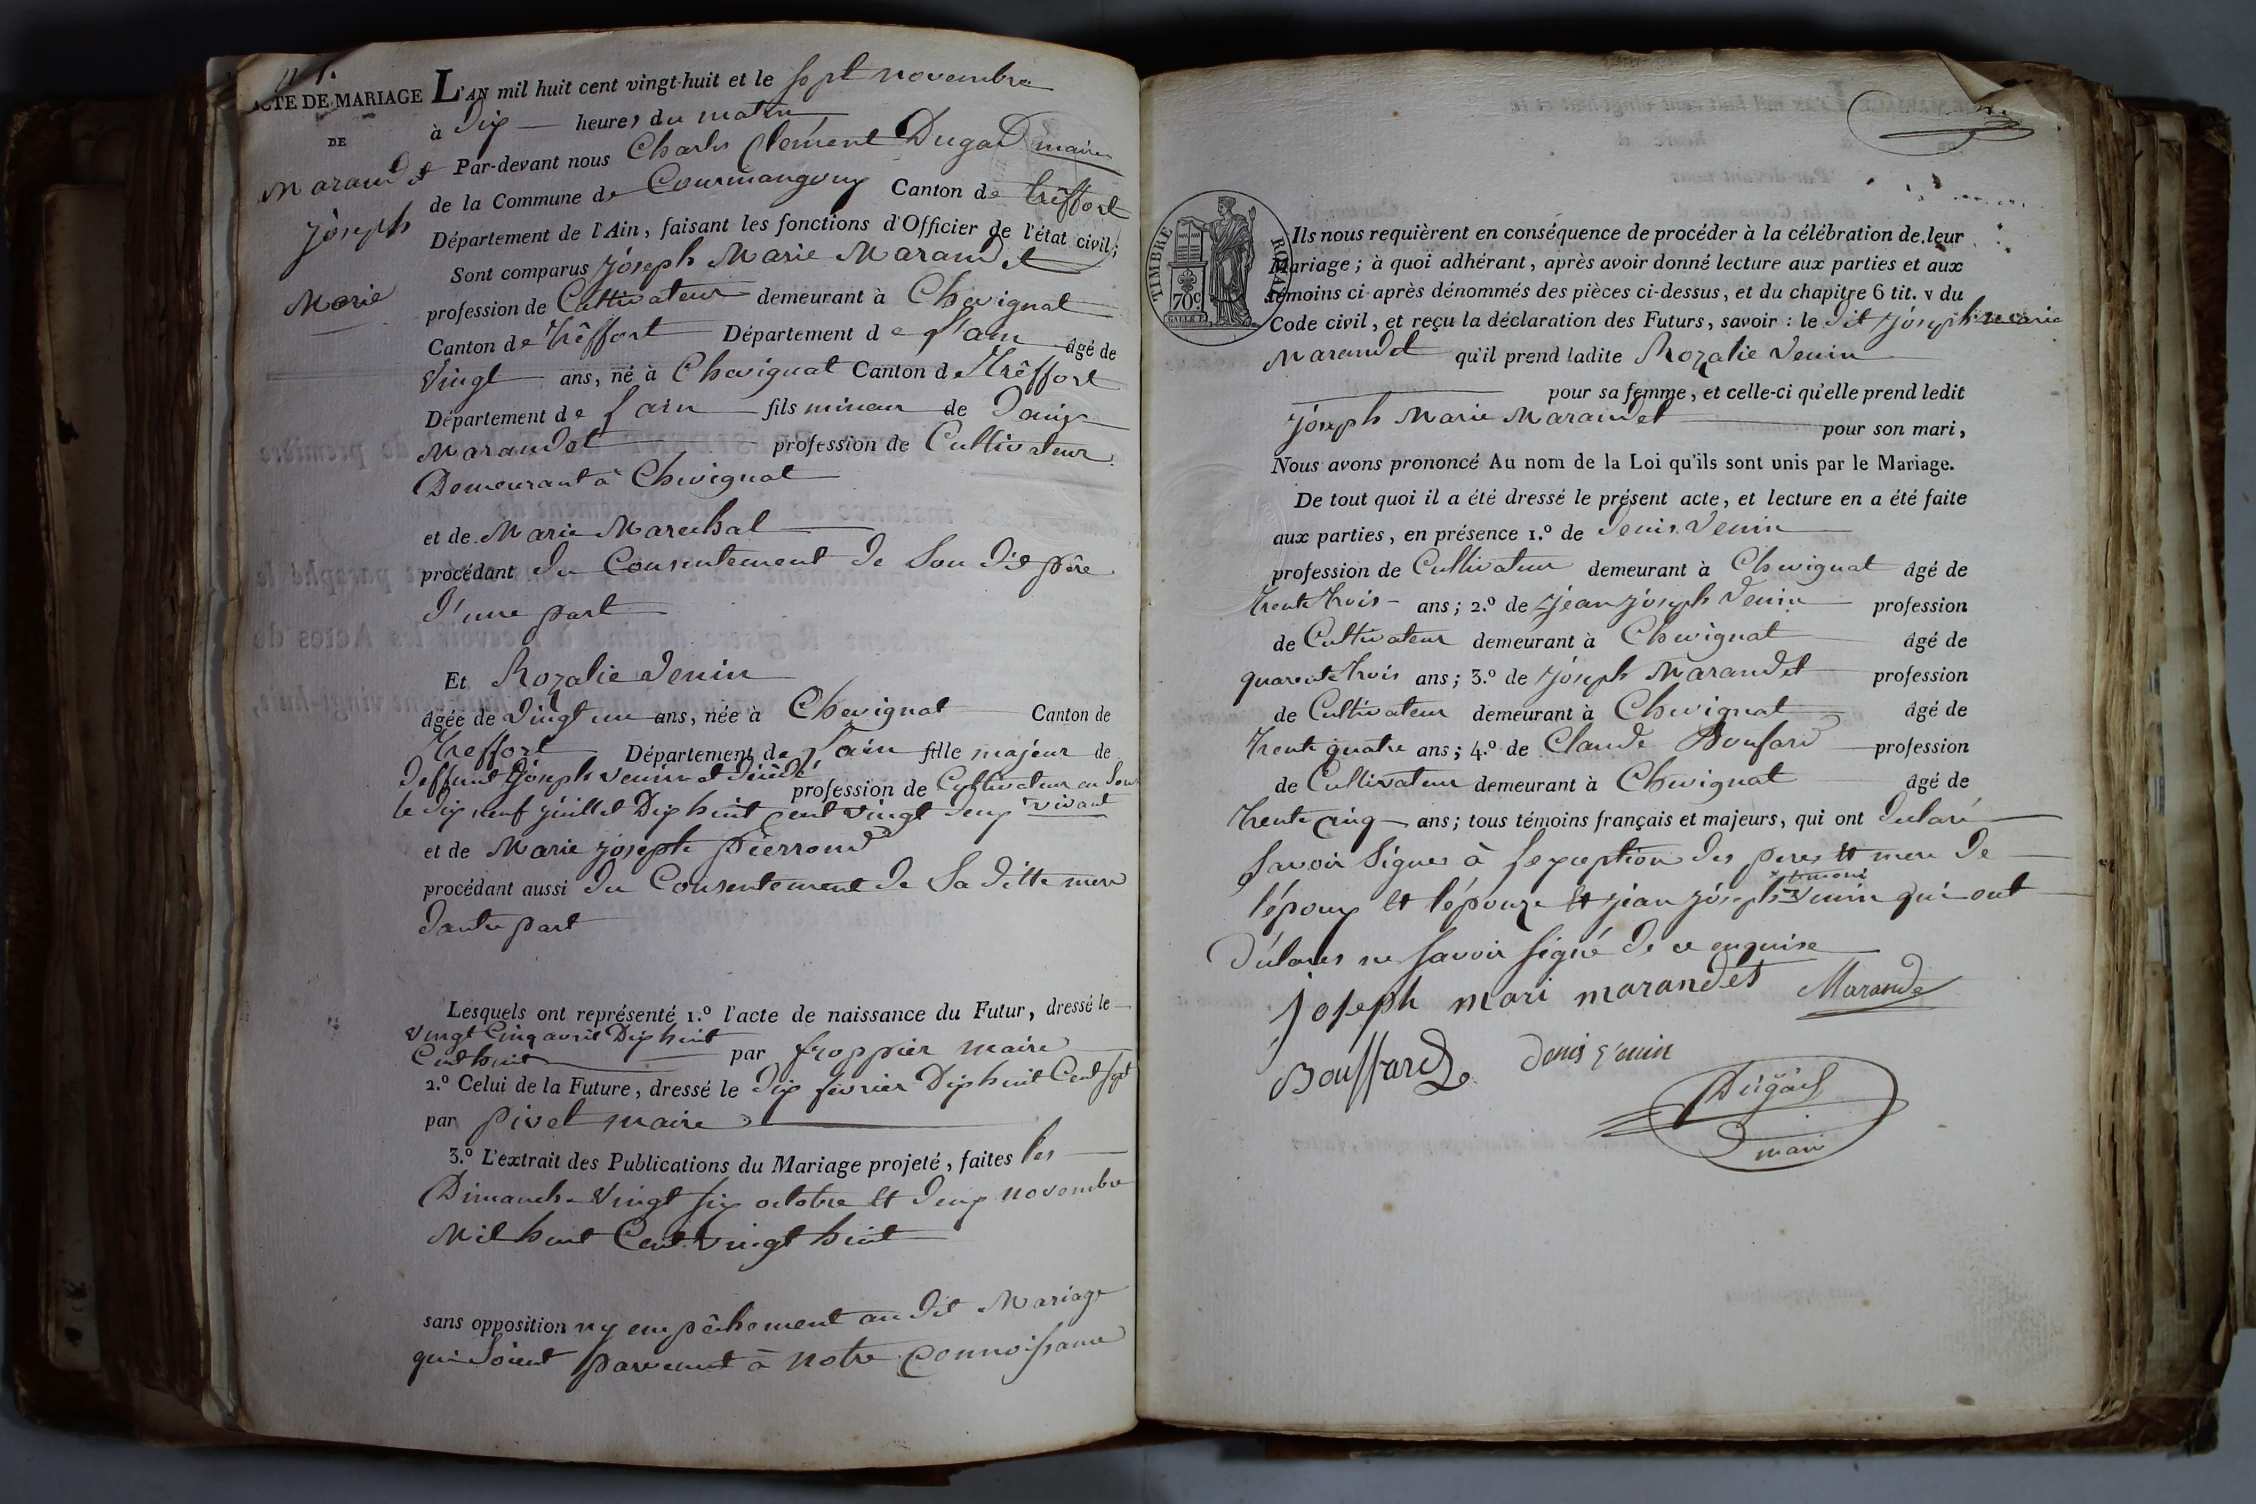 ACTE DE MARIAGE
DE
Marandet
joseph
Marie
L'AN mil huit cent vingt-huit et le sept novembre
à dix heures du matin
Par-devant nous Charles Clément Dugad maire
de la Commune de Courmangoux Canton de trêffort
Département de l'Ain, faisant les fonctions d'Officier de l'état civil;
Sont comparus joseph Marie Marandet
profession de Cultivateur demeurant à Chevignat
Canton de trêffort Département de l'ain âgé de
Vingt ans, né à Chevignat Canton de trêffort
Département de l'ain fils mineur de
Marandet profession de Cultivateur
Demeurant à Chevignat
et de Marie Marechal
procédant du Consentement de Son dit père
d'une part
Et Rozalie Venin
âgée de Vingt un ans, née à Chevignat Canton de
treffort Département de l'ain fille majeur de
deffunt joseph venin et décédé profession de Cultivateur en Son
le dix neuf juillet Dix huit Cent vingt deux vivant
et de Marie joseph pierroud
procédant aussi du Consentement de Sa ditte mere
dautre part
Lesquels ont représenté 1.º l'acte de naissance du Futur, dressé le
Vingt Cinq avril Dix huit
Cent huit par froppier maire
2.º Celui de la Future, dressé le dix fevrier Dix huit Cent sept
par pivet maire
3.º L'extrait des Publications du Mariage projeté, faites les
Dimanche Vingt six octobre et deux novembre
Mil huit Cent Vingt huit
sans opposition ny empêchement au dit Mariage
qui Soient parvenut à notre Connoissance
TIMBRE ROYAL
70 c
Ils nous requièrent en conséquence de procéder à la célébration de leur
Mariage; à quoi adhérant, après avoir donné lecture aux parties et aux
témoins ci-après dénommés des pièces ci-dessus, et du chapitre 6 tit. v du
Code civil, et reçu la déclaration des Futurs, savoir : le dit joseph marie
Marandet qu'il prend ladite Rozalie Venin
pour sa femme, et celle-ci qu'elle prend ledit
joseph Marie Marandet pour son mari,
Nous avons prononcé Au nom de la Loi qu'ils sont unis par le Mariage.
De tout quoi il a été dressé le présent acte, et lecture en a été faite
aux parties, en présence 1.º de denis Venin
profession de Cultivateur demeurant à Chevignat âgé de
trente trois ans; 2.º de jean joseph Venin profession
de Cultivateur demeurant à Chevignat âgé de
quarente trois ans; 3.º de joseph Marandet profession
de Cultivateur demeurant à Chevignat âgé de
trente quatre ans; 4.º de Claude Boufard profession
de Cultivateur demeurant à Chevignat âgé de
trente Cinq ans; tous témoins français et majeurs, qui ont declaré
Savoir Signer à l'exception des peres et mere de
l'époux et l'épouze et jean joseph Venin temoin qui ont
déclarés ne savoir signé de ce enquise
joseph mari marandet Marandet
Bouffard denis venin
Dugad
maire